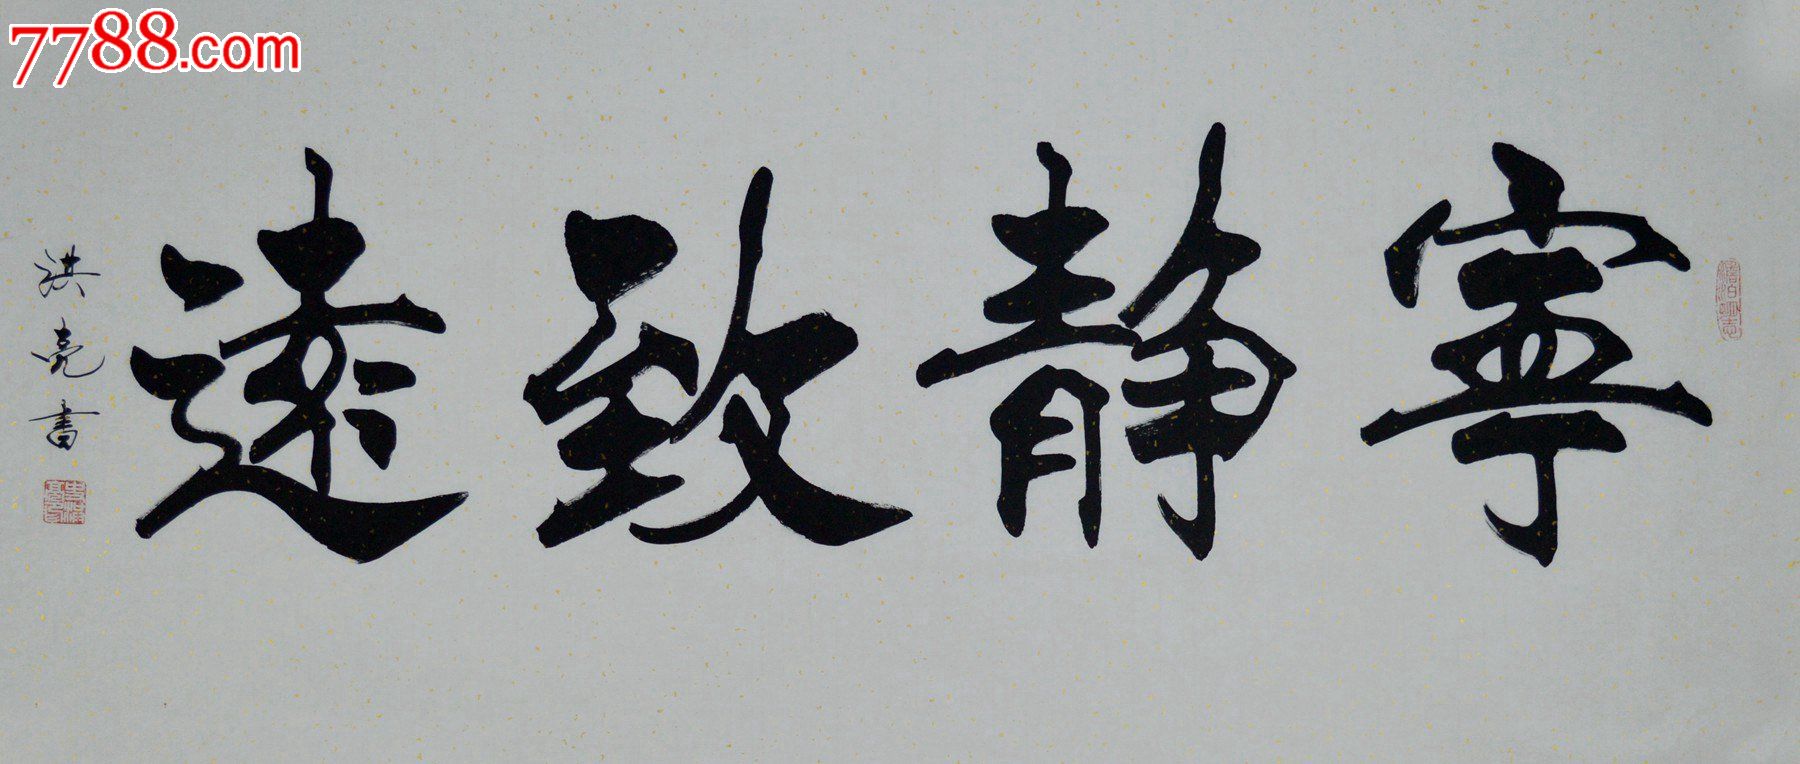 7788.com
寧静致遠
洪亮書